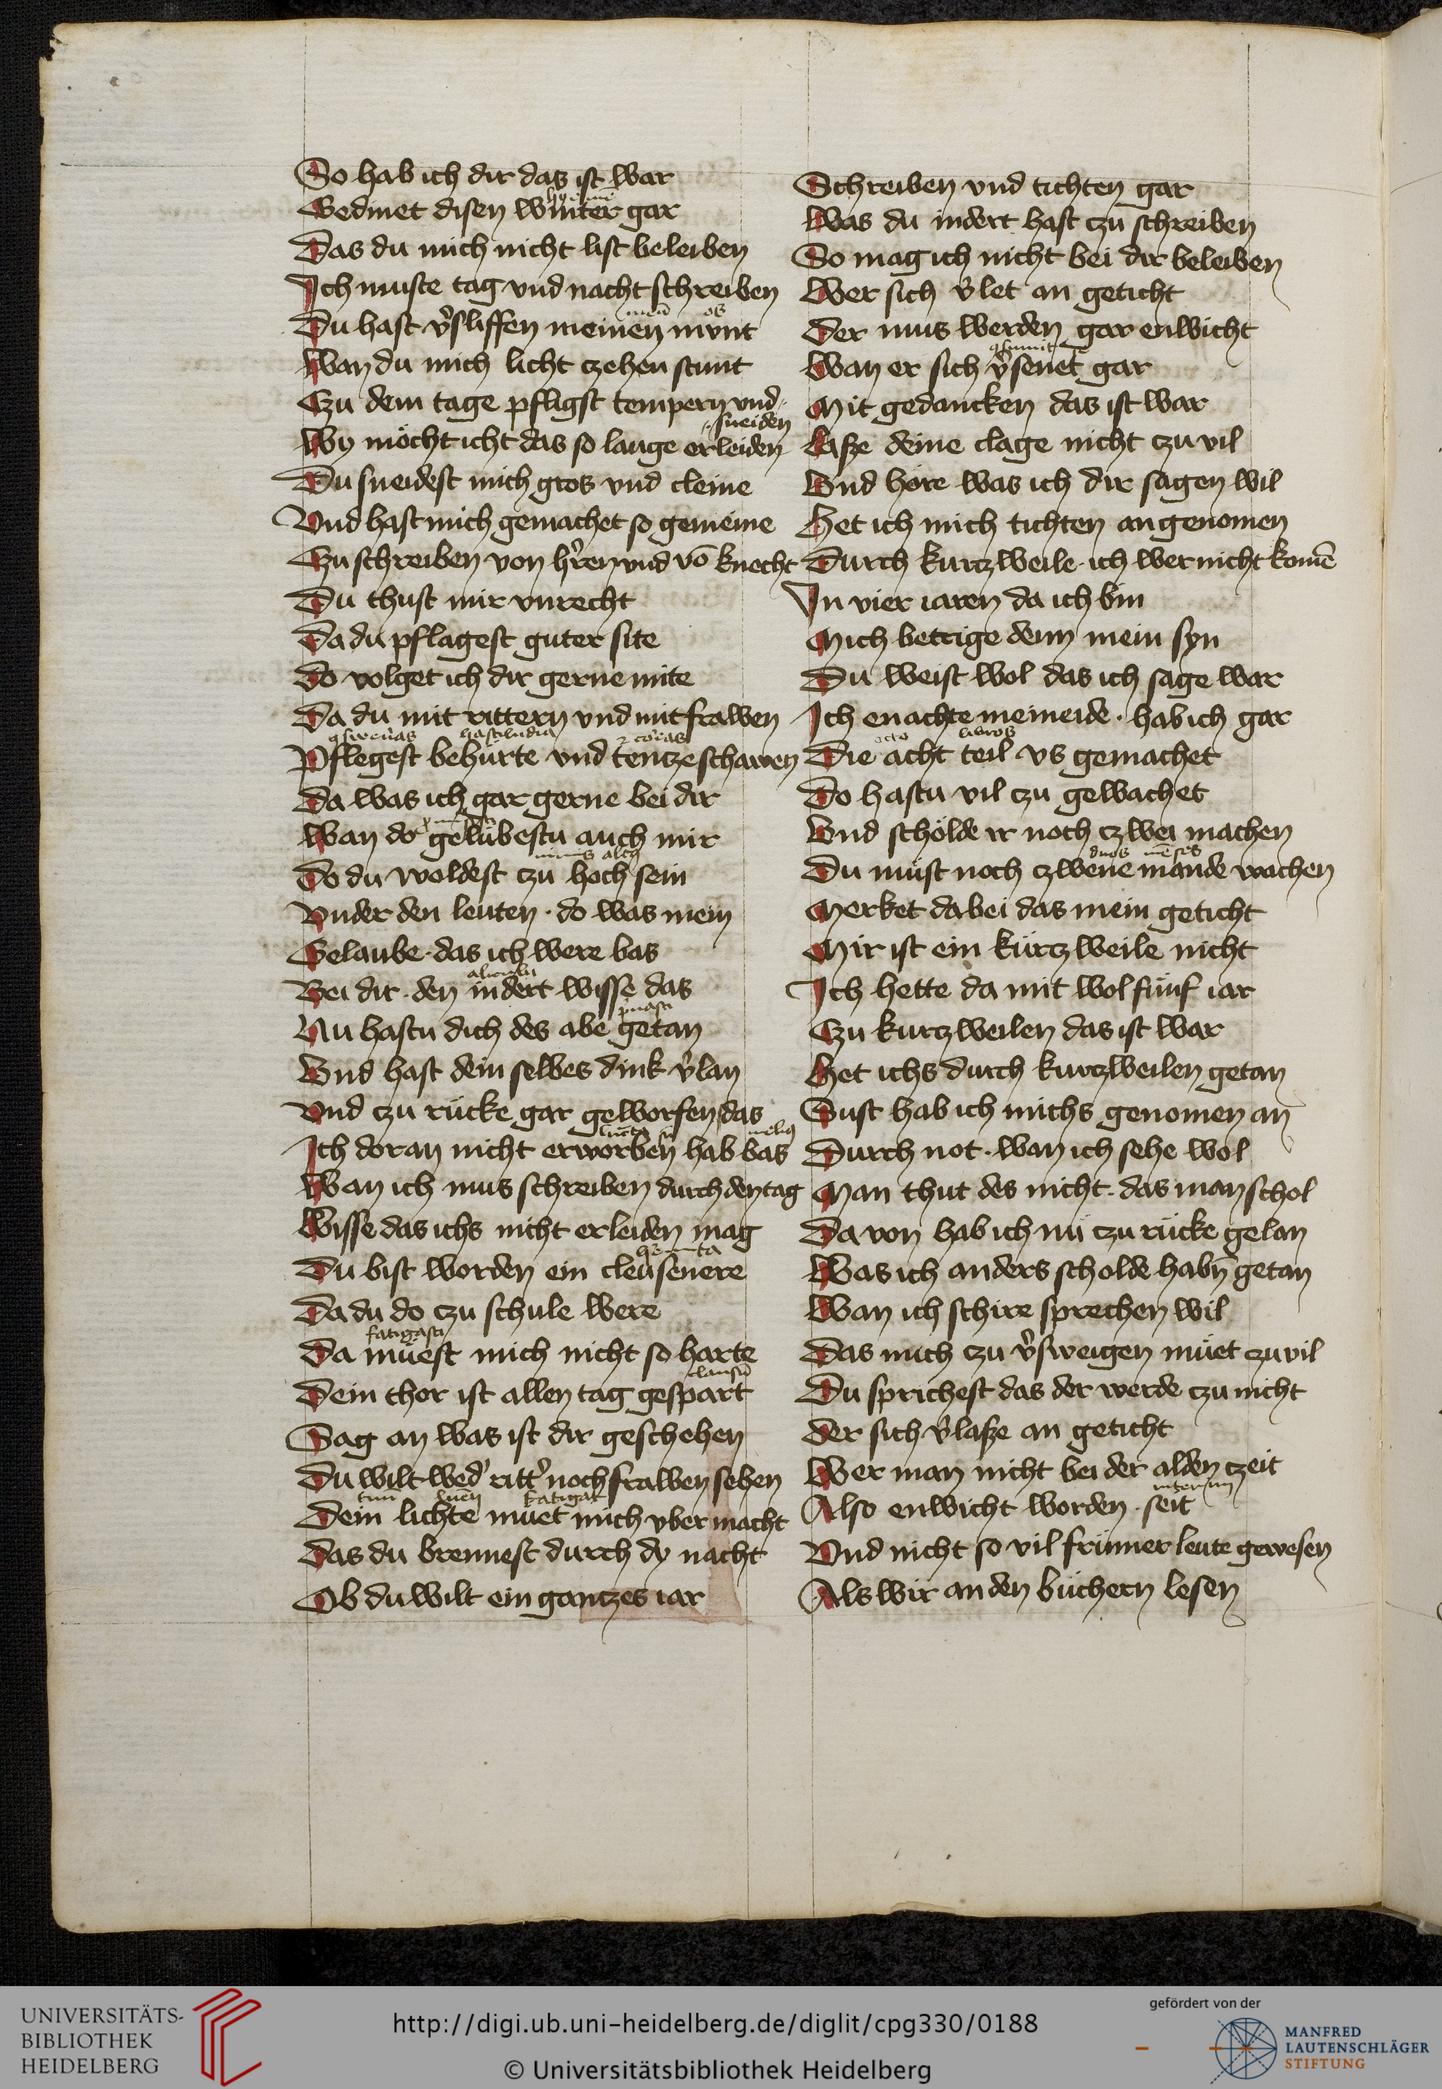 So hab ich dir das ist war
Gedinet disen winter gar
Das du mich nicht list beleiben
Ich muste tag vnd nacht schreiben
Du hast v͛sliffen meinen mvnt
os
Wan du mich licht czehen stunt
Czu dem tage pfligst tempern vnd
sneiden
Wy möcht icht das so lange erleiden
Du sneidest mich gros vnd cleine
Vnd hast mich gemachet so gemeine
Czu schreiben von h͛ren vnd vō knecht
Du thust mir vnrecht
Da du pflagest guter site
Do volget ich dir gerne mite
Da du mit rittern vnd mit frawen
hastiludia
Pflegest behurte vnd tentze schawen
Da was ich gar gerne bei dir
Wan do gelubestu auch mir
Do du woldest czu hoch sein
Vnder den leuten · do was mein
Gelaube · das ich were bas
Bei dir · den indert wisse das
Nu hastu dich des abe getan
Vnd hast dein selbes dink v͛lan
Vnd czu rücke gar geworfen das
Ich doran nicht erworben hab bas
Wan ich mus schreiben durch den tag
Wisse das ichs nicht erleiden mag
Du bist worden ein cleusenere
Da du do czu schule were
fatigasti
Da müest mich nicht so harte
Dein thor ist allen tag gespart
Sag an was ist dir geschehen
Du wilt wed͛ ritt͛ noch frawen sehen
fatigat
Dein lichte müet mich vber macht
Das du brennest durch dy nacht
Ob du wilt ein gantzes iar
Schreiben vnd tichten gar
Was du indert hast czu schreiben
So mag ich nicht bei dir beleiben
Wer sich v͛let an geticht
Der mus werden gar enwicht
Wan er sich v͛senet gar
Mit gedancken das ist war
Laße deine clage nicht czu vil
Vnd höre was ich dir sagen wil
Het ich mich tichten angenomen
Durch kurczweile · ich wer nicht komē
In vier iaren da ich bin
Mich betrige denn mein syn
Du weist wol das ich sage war
Ich enachte meineide · hab ich gar
octo libros
Die acht teil vs gemachet
Do hastu vil czu gewachet
Vnd schölde ir noch czwei machen
duos mēses
Du müst noch czwene mande wachen
Merket dabei das mein geticht
Mir ist ein kürczweile nicht
Ich hette da mit wol fünf iar
Czu kurczweilen das ist war
Het ichs durch kurczweilen getan
Sust hab ich michs genomen an
Durch not · wan ich sehe wol
Man thut des nicht · das man schol
Da von hab ich nü czu rücke gelan
Was ich anders scholde habn̄ getan
Wan ich schire sprechen wil
Das mich czu v͛sweigen müet czu vil
Du sprichest das der werde czu nicht
Der sich v͛laße an geticht
Wer man nicht bei der alden czeit
Also enwicht worden · seit
Vnd nicht so vil frümer leute gewesen
Als wir an den büchern lesen
UNIVERSITÄTS-
BIBLIOTHEK
HEIDELBERG
http://digi.ub.uni-heidelberg.de/diglit/cpg330/0188
© Universitätsbibliothek Heidelberg
gefördert von der
MANFRED
LAUTENSCHLÄGER
STIFTUNG